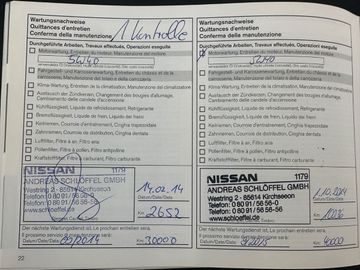 Wartungsnachweise
Quittances d'entretien
Conferma della manutenzione
1 Kontrolle
Durchgeführte Arbeiten, Travaux effectués, Operazioni eseguite
Motorwartung, Entretien du moteur, Manutenzione del motore
5W40
Fahrgestell- und Karosseriewartung, Entretien du châssis et de la carrosserie, Manutenzione del telaio e della carrozzeria
Klima-Wartung, Entretien de la climatisation, Manutenzione del climatizzatore
Austausch der Zündkerzen, Changement des bougies d'allumage, Cambiamento delle candele d'accensione
Kühlflüssigkeit, Liquide de refroidissement, Refrigerante
Bremsflüssigkeit, Liquide de frein, Liquido per freni
Keilriemen, Courroie d'entraînement, Cinghia trapezoidale
Zahnriemen, Courroie de distribution, Cinghia dentata
Luftfilter, Filtre à air, Filtro aria
Pollenfilter, Filtre à pollen, Filtro antipolline
Kraftstofffilter, Filtre à carburant, Filtro carburante
NISSAN 1179
ANDREAS SCHLÖFFEL GMBH
Westring 2 - 85614 Kirchseeon
Telefon: 0 80 91 / 56 56-0
Telefax: 0 80 91 / 56 56-56
www.schloeffel.de
14.02.14
Datum/Date/Data
Km 2652
Der nächste Wartungsdienst ist, Le prochain entretien sera,
Il prossimo servizio di manutenzione sarà:
Datum/Date/Data 09/2014 Km 30000
22
Wartungsnachweise
Quittances d'entretien
Conferma della manutenzione
Durchgeführte Arbeiten, Travaux effectués, Operazioni eseguite
Motorwartung, Entretien du moteur, Manutenzione del motore
5W40
Fahrgestell- und Karosseriewartung, Entretien du châssis et de la carrosserie, Manutenzione del telaio e della carrozzeria
Klima-Wartung, Entretien de la climatisation, Manutenzione del climatizzatore
Austausch der Zündkerzen, Changement des bougies d'allumage, Cambiamento delle candele d'accensione
Kühlflüssigkeit, Liquide de refroidissement, Refrigerante
Bremsflüssigkeit, Liquide de frein, Liquido per freni
Keilriemen, Courroie d'entraînement, Cinghia trapezoidale
Zahnriemen, Courroie de distribution, Cinghia dentata
Luftfilter, Filtre à air, Filtro aria
Pollenfilter, Filtre à pollen, Filtro antipolline
Kraftstofffilter, Filtre à carburant, Filtro carburante
NISSAN 1179
ANDREAS SCHLÖFFEL GMBH
Westring 2 - 85614 Kirchseeon
Telefon: 0 80 91 / 56 56-0
Telefax: 0 80 91 / 56 56-56
www.schloeffel.de
1.10.2014
Datum/Date/Data
Km
Der nächste Wartungsdienst ist, Le prochain entretien sera,
Il prossimo servizio di manutenzione sarà:
Datum/Date/Data Km